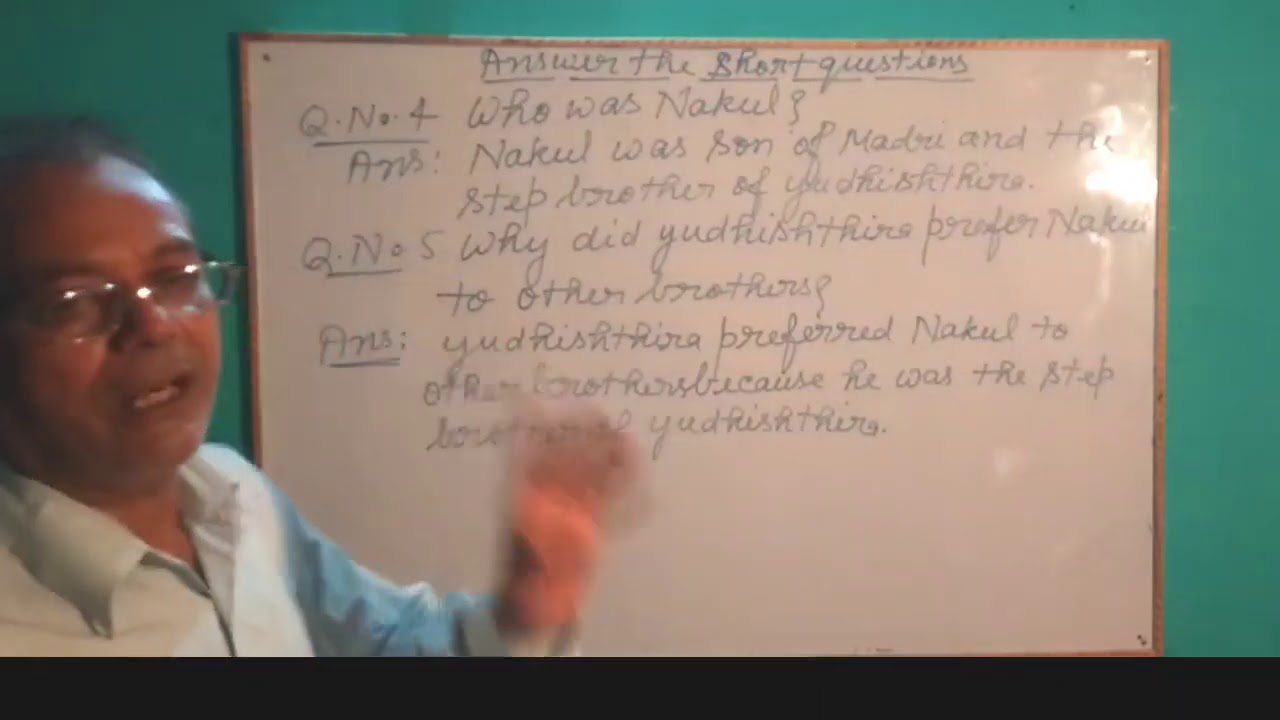 Answer the short questions
Q.No.4 Who was Nakul?
Ans: Nakul was son of Madri and the
step brother of yudhishthira.
Q.No 5 Why did yudhishthira prefer Nakul
to other brothers?
Ans: yudhishthira preferred Nakul to
other brothers because he was the step
brother of yudhishthira.